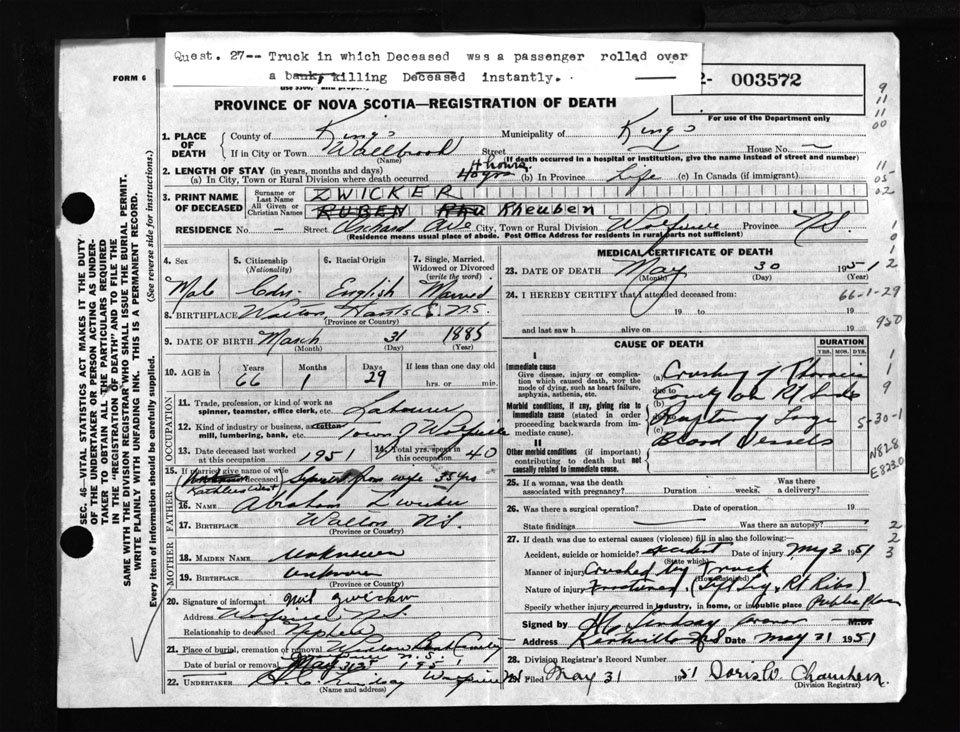 Quest. 27-- Truck in which Deceased was a passenger rolled over
a bank, killing Deceased instantly.
FORM 6
003572
For use of the Department only
PROVINCE OF NOVA SCOTIA—REGISTRATION OF DEATH
1. PLACE OF DEATH County of Kings Municipality of Kings
If in City or Town Wallbrook Street House No. —
(Name) (If death occurred in a hospital or institution, give the name instead of street and number)
2. LENGTH OF STAY (in years, months and days)
(a) In City, Town or Rural Division where death occurred 4 hours 40 yrs (b) In Province Life (c) In Canada (if immigrant)
3. PRINT NAME OF DECEASED Surname or Last Name ZWICKER
All Given or Christian Names RUBEN Rheuben
RESIDENCE No. — Street Orchard Ave City, Town or Rural Division Wolfville Province N.S.
(Residence means usual place of abode. Post Office Address for residents in rural parts not sufficient)
4. Sex 5. Citizenship (Nationality) 6. Racial Origin 7. Single, Married, Widowed or Divorced (write the word)
Male Cdn. English Married
8. BIRTHPLACE Walton Hants Co N.S.
(Province or Country)
9. DATE OF BIRTH March 31 1885
(Month) (Day) (Year)
10. AGE in Years Months Days If less than one day
66 1 29 hrs. or min.
OCCUPATION
11. Trade, profession, or kind of work as spinner, teamster, office clerk, etc. Labourer
12. Kind of industry or business, as cotton mill, lumbering, bank, etc. Town of Wolfville
13. Date deceased last worked at this occupation 1951 14. Total yrs. spent in this occupation 40
15. If married give name of wife deceased. Separated from wife 35 yrs
Kathleen West
FATHER
16. Name Abraham Zwicker
17. Birthplace Walton N.S.
(Province or Country)
MOTHER
18. Maiden Name Unknown
19. Birthplace Unknown
(Province or Country)
20. Signature of informant Zwicker
Address Wolfville N.S.
Relationship to deceased Nephew
21. Place of burial, cremation or removal Willow Bank Cemetery
Wolfville N.S.
Date of burial or removal May 31st 1951
22. UNDERTAKER H. C. Lindsay Wolfville NS
(Name and address)
MEDICAL CERTIFICATE OF DEATH
23. DATE OF DEATH May 30 1951
(Month) (Day) (Year)
24. I HEREBY CERTIFY that I attended deceased from:
19 to 19
and last saw h alive on 19
CAUSE OF DEATH DURATION
YRS. MOS. DYS.
I
Immediate cause
Give disease, injury or complication which caused death, NOT the mode of dying, such as heart failure, asphyxia, asthenia, etc.
(a) Crushing of Thoracic
Cavity on Rt Side
Morbid conditions, if any, giving rise to immediate cause (stated in order proceeding backwards from immediate cause).
(b)
(c)
Large
Blood Vessels
II
Other morbid conditions (if important) contributing to death but not causally related to immediate cause.
25. If a woman, was the death associated with pregnancy? Duration weeks. Was there a delivery?
26. Was there a surgical operation? Date of operation 19
State findings Was there an autopsy?
27. If death was due to external causes (violence) fill in also the following:—
Accident, suicide or homicide? accident Date of injury May 30 1951
(State which)
Manner of injury Crushed by Truck
(How sustained)
Nature of injury Fractured Rt Ribs)
Specify whether injury occurred in industry, in home, or in public place Public place
Signed by Lindsay Coroner M.D.
Address Kentville N.S. Date May 31 1951
28. Division Registrar's Record Number
29. Filed May 31 1951 Doris W. Chambers
(Division Registrar)
SEC. 46—VITAL STATISTICS ACT MAKES IT THE DUTY
OF THE UNDERTAKER OR PERSON ACTING AS UNDER-
TAKER TO OBTAIN ALL THE PARTICULARS REQUIRED
IN THE "REGISTRATION OF DEATH" AND TO FILE THE
SAME WITH THE DIVISION REGISTRAR WHO SHALL ISSUE THE BURIAL PERMIT.
WRITE PLAINLY WITH UNFADING INK. THIS IS A PERMANENT RECORD.
Every item of information should be carefully supplied. (See reverse side for instructions.)
9
11
11
00
11
05
02
1
0
1
2
66-1-29
950
1
1
9
5-30-1
N828
E8230
2
2
3